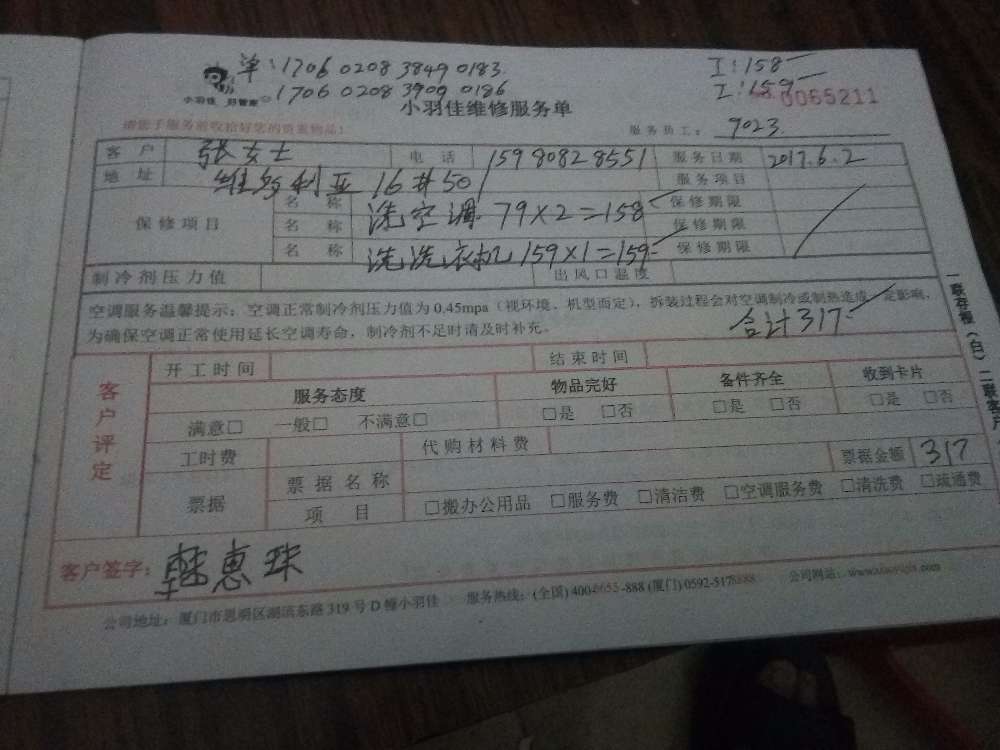 单:1706 0208 3849 0183. 工:158
1706 0208 3900 0186 工:159
小羽佳 好管家 0065211
小羽佳维修服务单
请您于服务前收拾好您的贵重物品! 服务员工: 9023
客户 张女士 电话 15980828551 服务日期 2017.6.2
地址 维多利亚16#50 服务项目
保修项目 名称 洗空调 79×2=158 保修期限
名称 保修期限
名称 洗洗衣机 159×1=159 保修期限
制冷剂压力值 出风口温度
空调服务温馨提示:空调正常制冷剂压力值为0.45mpa(视环境、机型而定),拆装过程会对空调制冷或制热造成一定影响,
为确保空调正常使用延长空调寿命,制冷剂不足时请及时补充。 合计317.
一联存根(白)二联客户
客户评定 开工时间 结束时间
服务态度 物品完好 备件齐全 收到卡片
满意□ 一般□ 不满意□ □是 □否 □是 □否 □是 □否
工时费 代购材料费
票据 票据名称 票据金额 317
项目 □搬办公用品 □服务费 □清洁费 □空调服务费 □清洗费 □疏通费
客户签字: 韩惠珠
公司地址:厦门市思明区湖滨东路319号D幢小羽佳 服务热线:(全国)400-6655-888(厦门)0592-5178888 公司网站:www.xiaoyujia.com